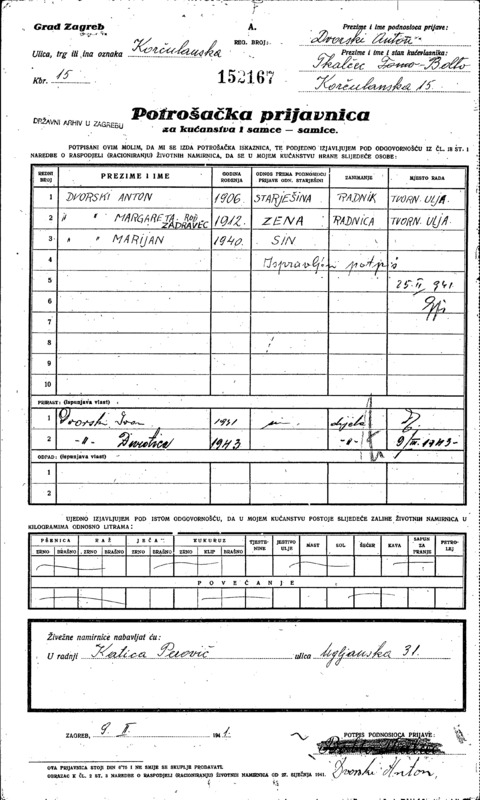 Grad Zagreb
A.
REG. BROJ:
152167
Ulica, trg ili ina oznaka Korčulanska
Kbr. 15
Prezime i ime podnosioca prijave:
Dvorski Antun
Prezime i ime i stan kućevlasnika:
Tkalčec Tomo-Bolto
Korčulanska 15
DRŽAVNI ARHIV U ZAGREBU
Potrošačka prijavnica
za kućanstva i samce — samice.
POTPISANI OVIM MOLIM, DA MI SE IZDA POTROŠAČKA ISKAZNICA, TE PODJEDNO IZJAVLJUJEM POD ODGOVORNOŠĆU IZ ČL. 18 ST. 1
NAREDBE O RASPODJELI (RACIONIRANJU) ŽIVOTNIH NAMIRNICA, DA SE U MOJEM KUĆANSTVU HRANE SLIJEDEĆE OSOBE:
REDNI BROJ PREZIME I IME GODINA ROĐENJA ODNOS PREMA PODNOSIOCU PRIJAVE ODN. STARJEŠINI ZANIMANJE MJESTO RADA
1 DVORSKI ANTON 1906. STARJEŠINA RADNIK TVORN. ULJA.
2 " " MARGARETA ROĐ. ZADRAVEC 1912. ŽENA RADNICA TVORN. ULJA.
3 " " MARIJAN 1940. SIN
4 Ispravljeni potpis
5 25. II. 941
6
7
8
9
10
PRIRAST: (Ispunjava vlast)
1 Dvorski Ivan 1931 sin dijete
2 -"- 1943 -"- 9/III. 1943-
OTPAD: (Ispunjava vlast)
1
2
UJEDNO IZJAVLJUJEM POD ISTOM ODGOVORNOŠĆU, DA U MOJEM KUĆANSTVU POSTOJE SLIJEDEĆE ZALIHE ŽIVOTNIH NAMIRNICA U
KILOGRAMIMA ODNOSNO LITRAMA:
PŠENICA RAŽ JEČAM KUKURUZ TJESTENINE JESTIVO ULJE MAST SOL ŠEĆER KAVA SAPUN ZA PRANJE PETROLEJ
ZRNO BRAŠNO ZRNO BRAŠNO ZRNO BRAŠNO ZRNO KLIP BRAŠNO
POVEĆANJE
Živežne namirnice nabavljat ću:
U radnji Katica Perović ulica Ugljanska 31.
ZAGREB, 9. II. 1941.
POTPIS PODNOSIOCA PRIJAVE:
Dvorski Anton,
OVA PRIJAVNICA STOJI DIN 0'75 I NE SMIJE SE SKUPLJE PRODAVATI.
OBRAZAC K ČL. 2 ST. 3 NAREDBE O RASPODJELI (RACIONIRANJU) ŽIVOTNIH NAMIRNICA OD 27. SIJEČNJA 1941.